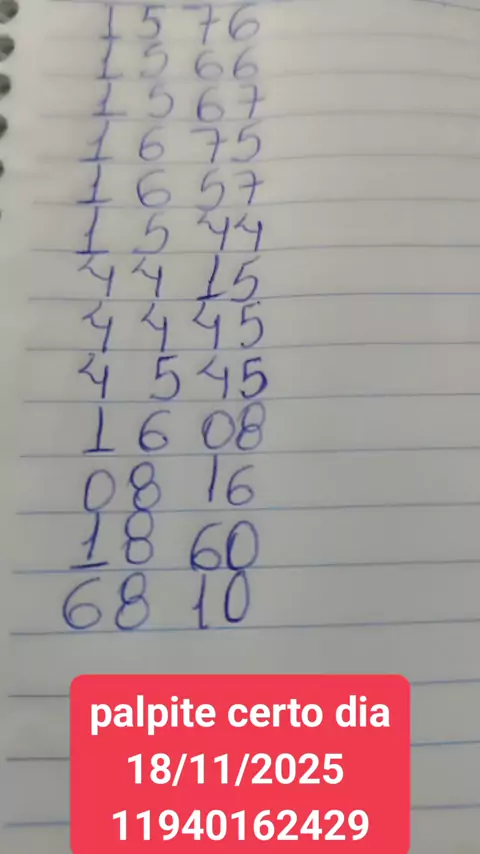 15 76
15 66
15 67
16 75
16 57
15 44
44 15
44 45
45 45
16 08
08 16
18 60
68 10
palpite certo dia
18/11/2025
11940162429